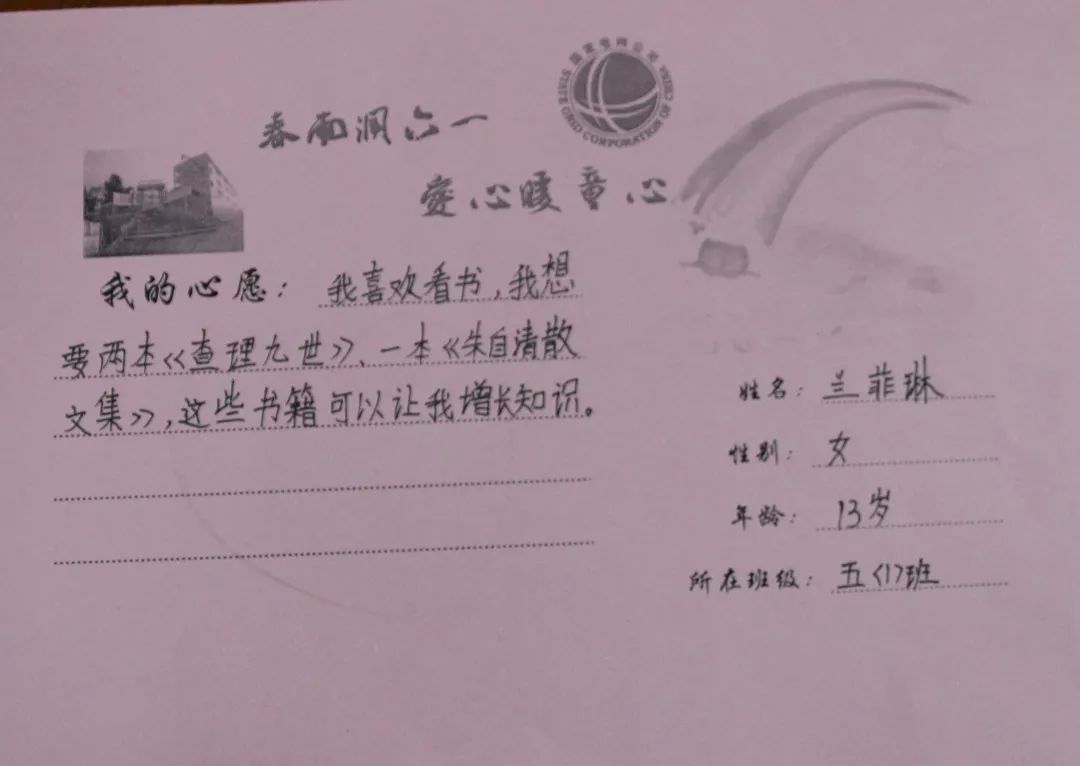 国家电网公司
STATE GRID CORPORATION OF CHINA
春雨润六一
爱心暖童心
我的心愿：我喜欢看书，我想
要两本《查理九世》、一本《朱自清散
文集》，这些书籍可以让我增长知识。
姓名：兰菲琳
性别：女
年龄：13岁
所在班级：五〈1〉班